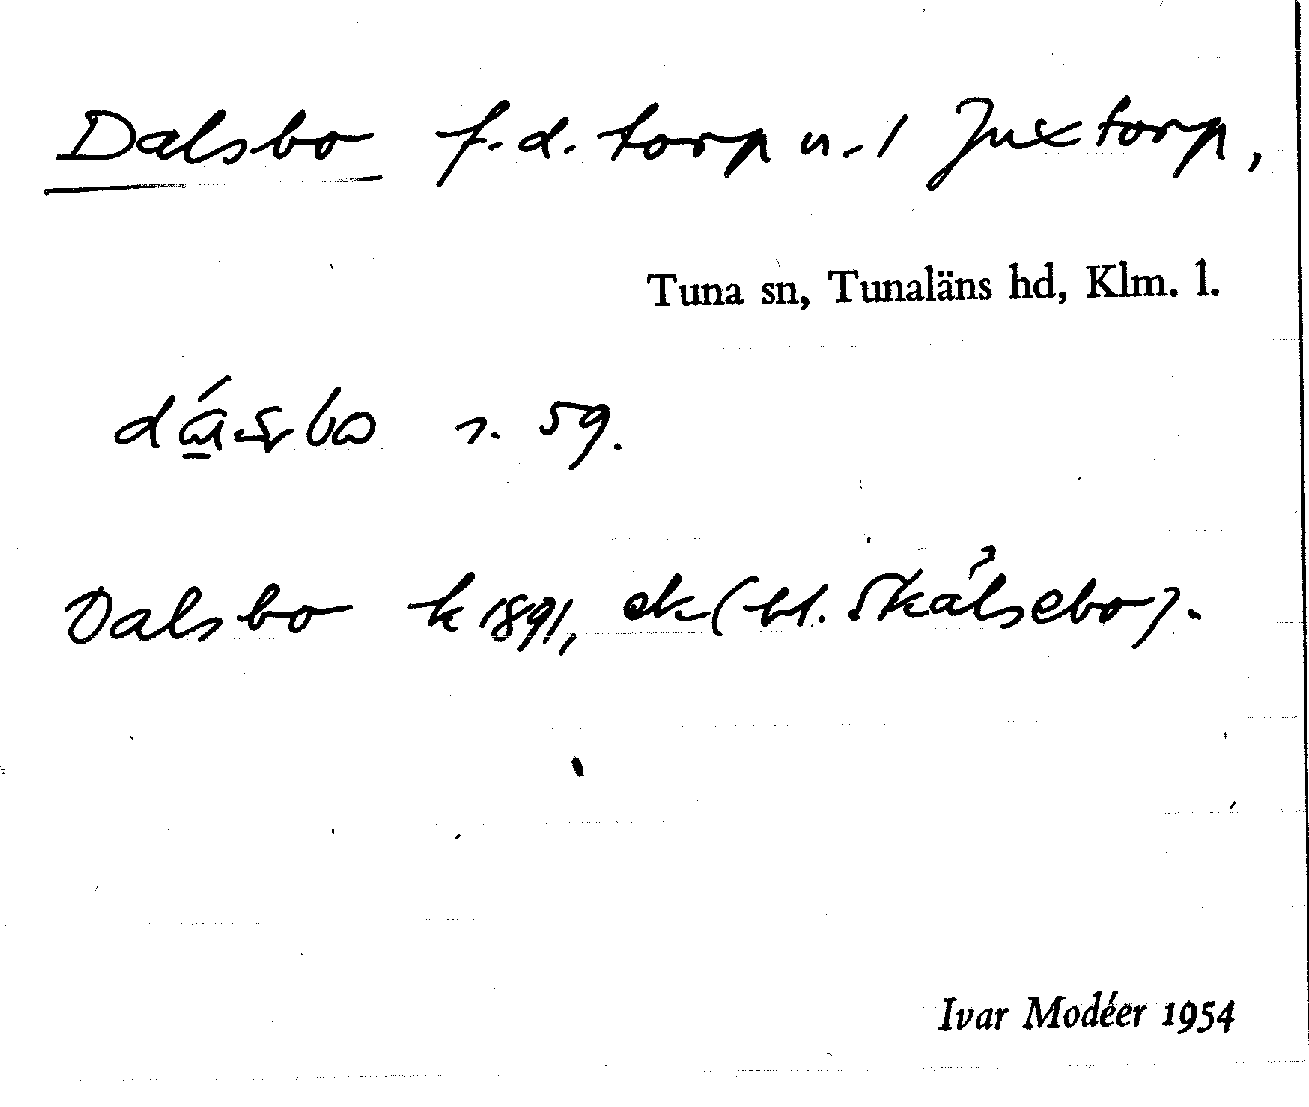 Dalsbo f.d. torp u. 1 Juxtorp,
Tuna sn, Tunaläns hd, Klm. l.
s. 59.
Dalsbo k 1891, ek (bl. Skålsebo).
Ivar Modéer 1954